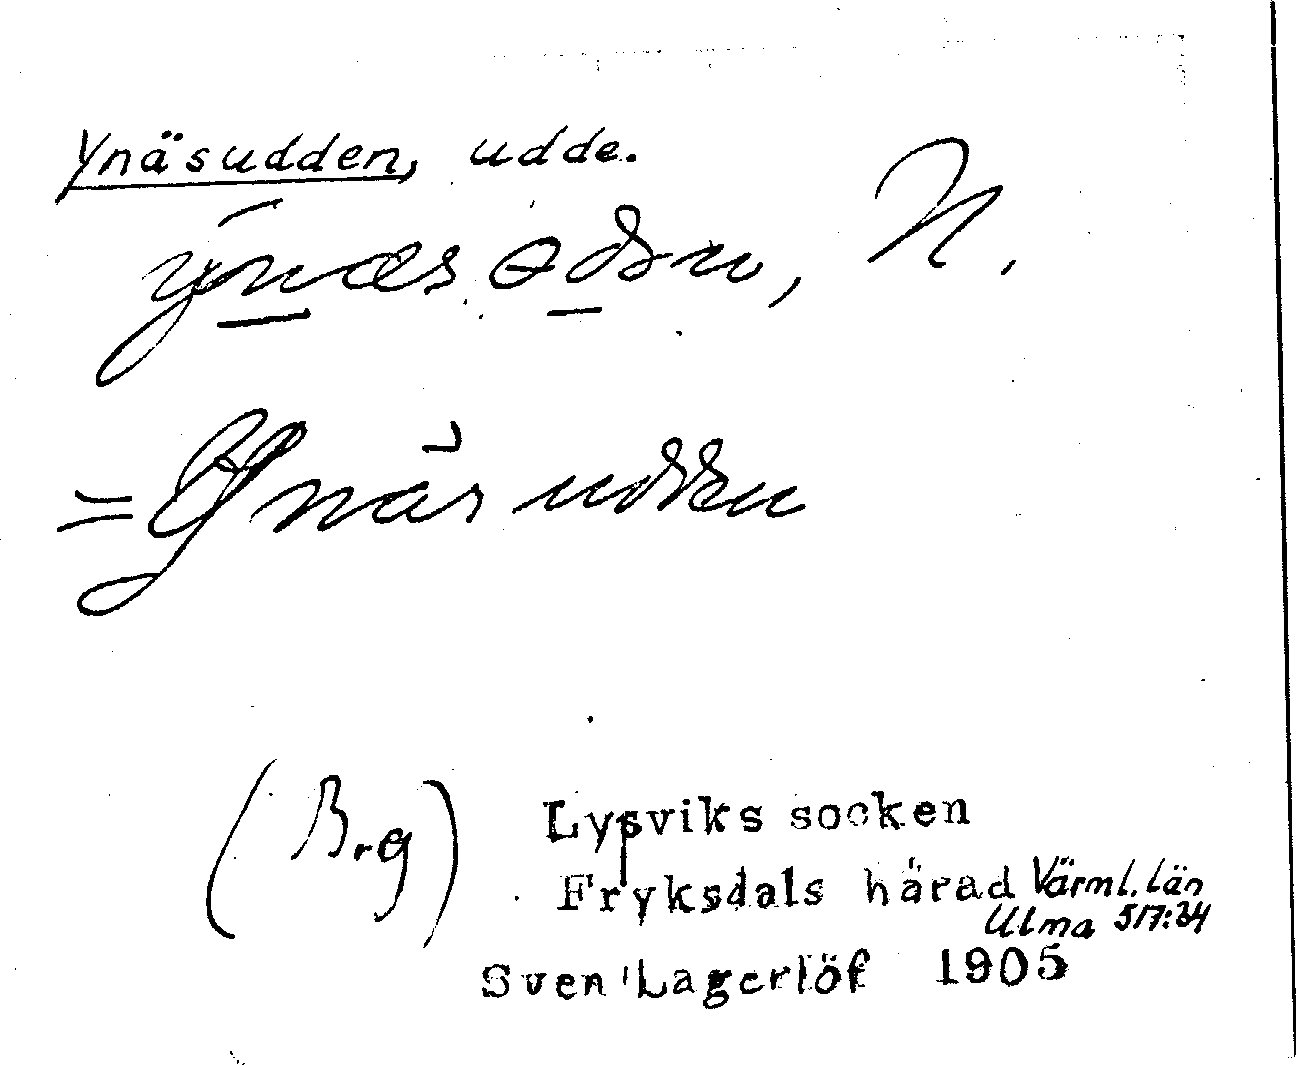 Ynäsudden, udde.
ȳnæsɵdən, N.
= Ynäsudden
(Brg) Lysviks socken
Fryksdals härad Värml. län
Ulma 517:34
Sven Lagerlöf 1905